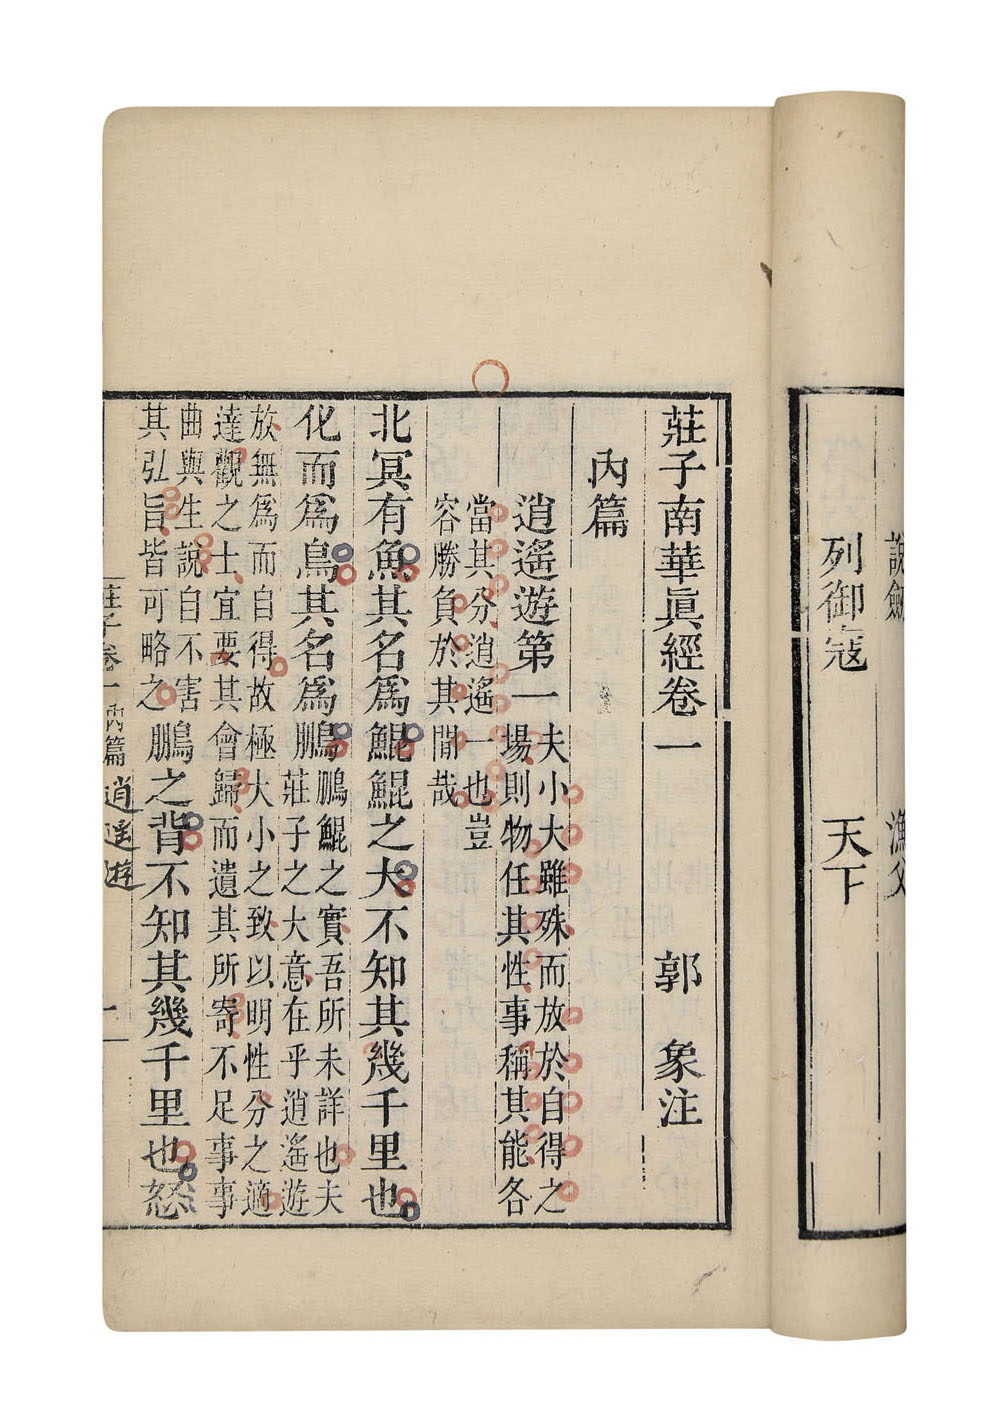 說劍　漁父
列御寇　天下
莊子南華眞經卷一　郭象注
内篇
逍遙遊第一
夫小大雖殊而放於自得之
場則物任其性事稱其能各
當其分逍遙一也豈
容勝負於其閒哉
北冥有魚其名爲鯤鯤之大不知其幾千里也
化而爲鳥其名爲鵬
鵬鯤之實吾所未詳也夫
莊子之大意在乎逍遙遊
放無爲而自得故極大小之致以明性分之適
達觀之士宜要其會歸而遺其所寄不足事事
曲與生說自不害
其弘旨皆可略之
鵬之背不知其幾千里也怒
莊子卷一内篇　逍遙遊　一